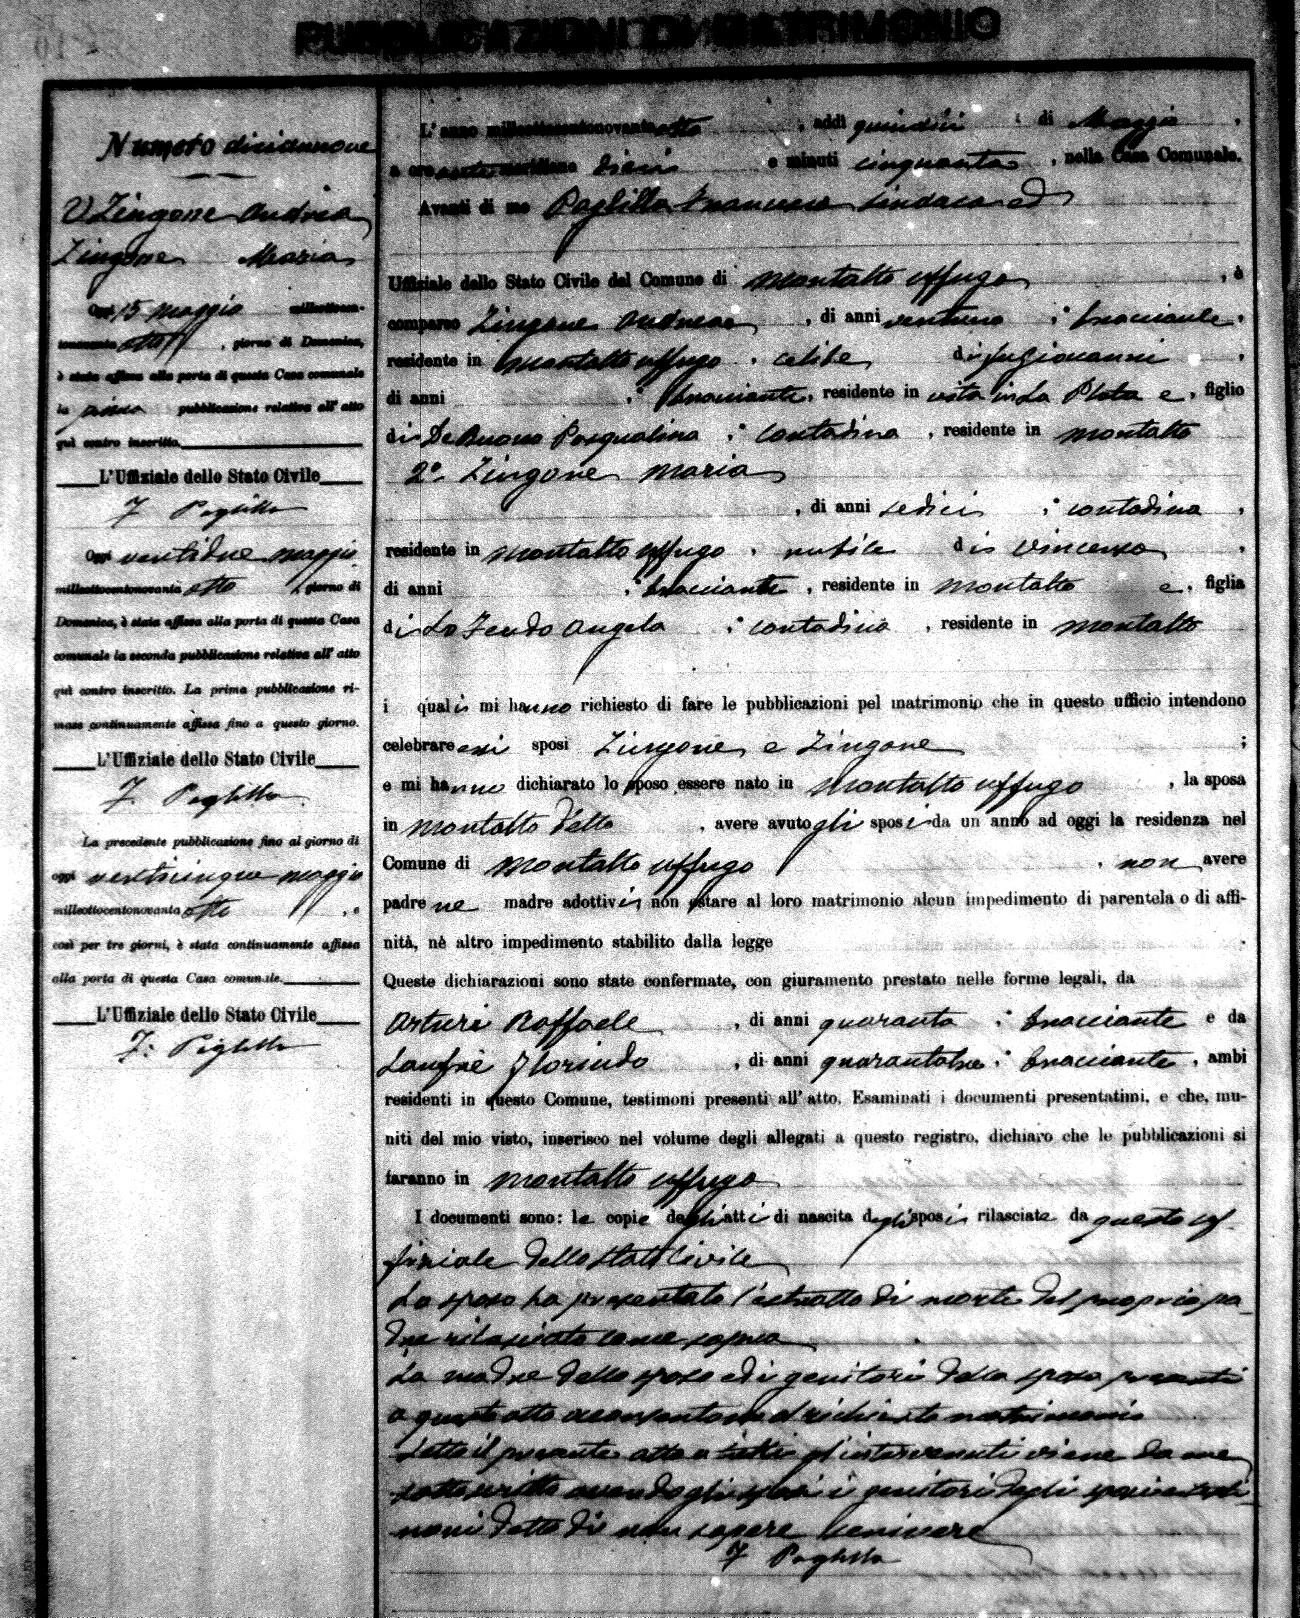 PUBBLICAZIONI DI MATRIMONIO
Numero diciannove
Zingone Andrea
Zingone Maria
Oggi 15 maggio milleottocen-
tonovanta otto, giorno di Domenica,
è stata affissa alla porta di questa Casa comunale
la prima pubblicazione relativa all'atto
quì contro inscritto.
L'Uffiziale dello Stato Civile
F Paglilla
Oggi ventidue maggio
milleottocentonovanta otto, giorno di
Domenica, è stata affissa alla porta di questa Casa
comunale la seconda pubblicazione relativa all'atto
quì contro inscritto. La prima pubblicazione ri-
mase continuamente affissa fino a questo giorno.
L'Uffiziale dello Stato Civile
F. Paglilla
La precedente pubblicazione fino al giorno di
oggi venticinque maggio
milleottocentonovanta otto, e
così per tre giorni, è stata continuamente affissa
alla porta di questa Casa comunale.
L'Uffiziale dello Stato Civile
F. Paglilla
L'anno milleottocentonovanta otto, addì quindici di Maggio,
a ore meridiane dieci e minuti cinquanta, nella Casa Comunale.
Avanti di me Paglilla Francesco Sindaco ed
Uffiziale dello Stato Civile del Comune di Montalto Uffugo, è
comparso Zingone Andrea, di anni ventuno, bracciante,
residente in Montalto Uffugo, celibe di fu Giovanni,
di anni , bracciante, residente in vita in La Plata e, figlio
di De Buono Pasqualina, contadina, residente in Montalto
2° Zingone Maria
, di anni sedici, contadina,
residente in Montalto Uffugo, nubile di Vincenzo,
di anni , bracciante, residente in Montalto e, figlia
di Lo Feudo Angela, contadina, residente in Montalto
i quali mi hanno richiesto di fare le pubblicazioni pel matrimonio che in questo ufficio intendono
celebrare essi sposi Zingone e Zingone;
e mi hanno dichiarato lo sposo essere nato in Montalto Uffugo, la sposa
in Montalto detto, avere avuto gli sposi da un anno ad oggi la residenza nel
Comune di Montalto Uffugo, non avere
padre nè madre adottivi, non ostare al loro matrimonio alcun impedimento di parentela o di affi-
nità, nè altro impedimento stabilito dalla legge
Queste dichiarazioni sono state confermate, con giuramento prestato nelle forme legali, da
Arturi Raffaele, di anni quaranta, bracciante e da
Florindo, di anni quarantatre, bracciante, ambi
residenti in questo Comune, testimoni presenti all'atto. Esaminati i documenti presentatimi, e che, mu-
niti del mio visto, inserisco nel volume degli allegati a questo registro, dichiaro che le pubblicazioni si
faranno in Montalto Uffugo
I documenti sono: le copie degli atti di nascita degli sposi rilasciate da questo uf-
fiziale dello Stato Civile
Lo sposo ha presentato l'estratto di morte del proprio pa-
dre rilasciato come sopra
La madre dello sposo ed i genitori della sposa presenti
a questo atto acconsentono al richiesto matrimonio
Letto il presente atto a tutti gl'intervenuti viene da me
sottoscritto avendo gli sposi i genitori degli sposi e testi-
moni detto di non sapere scrivere
F Paglilla